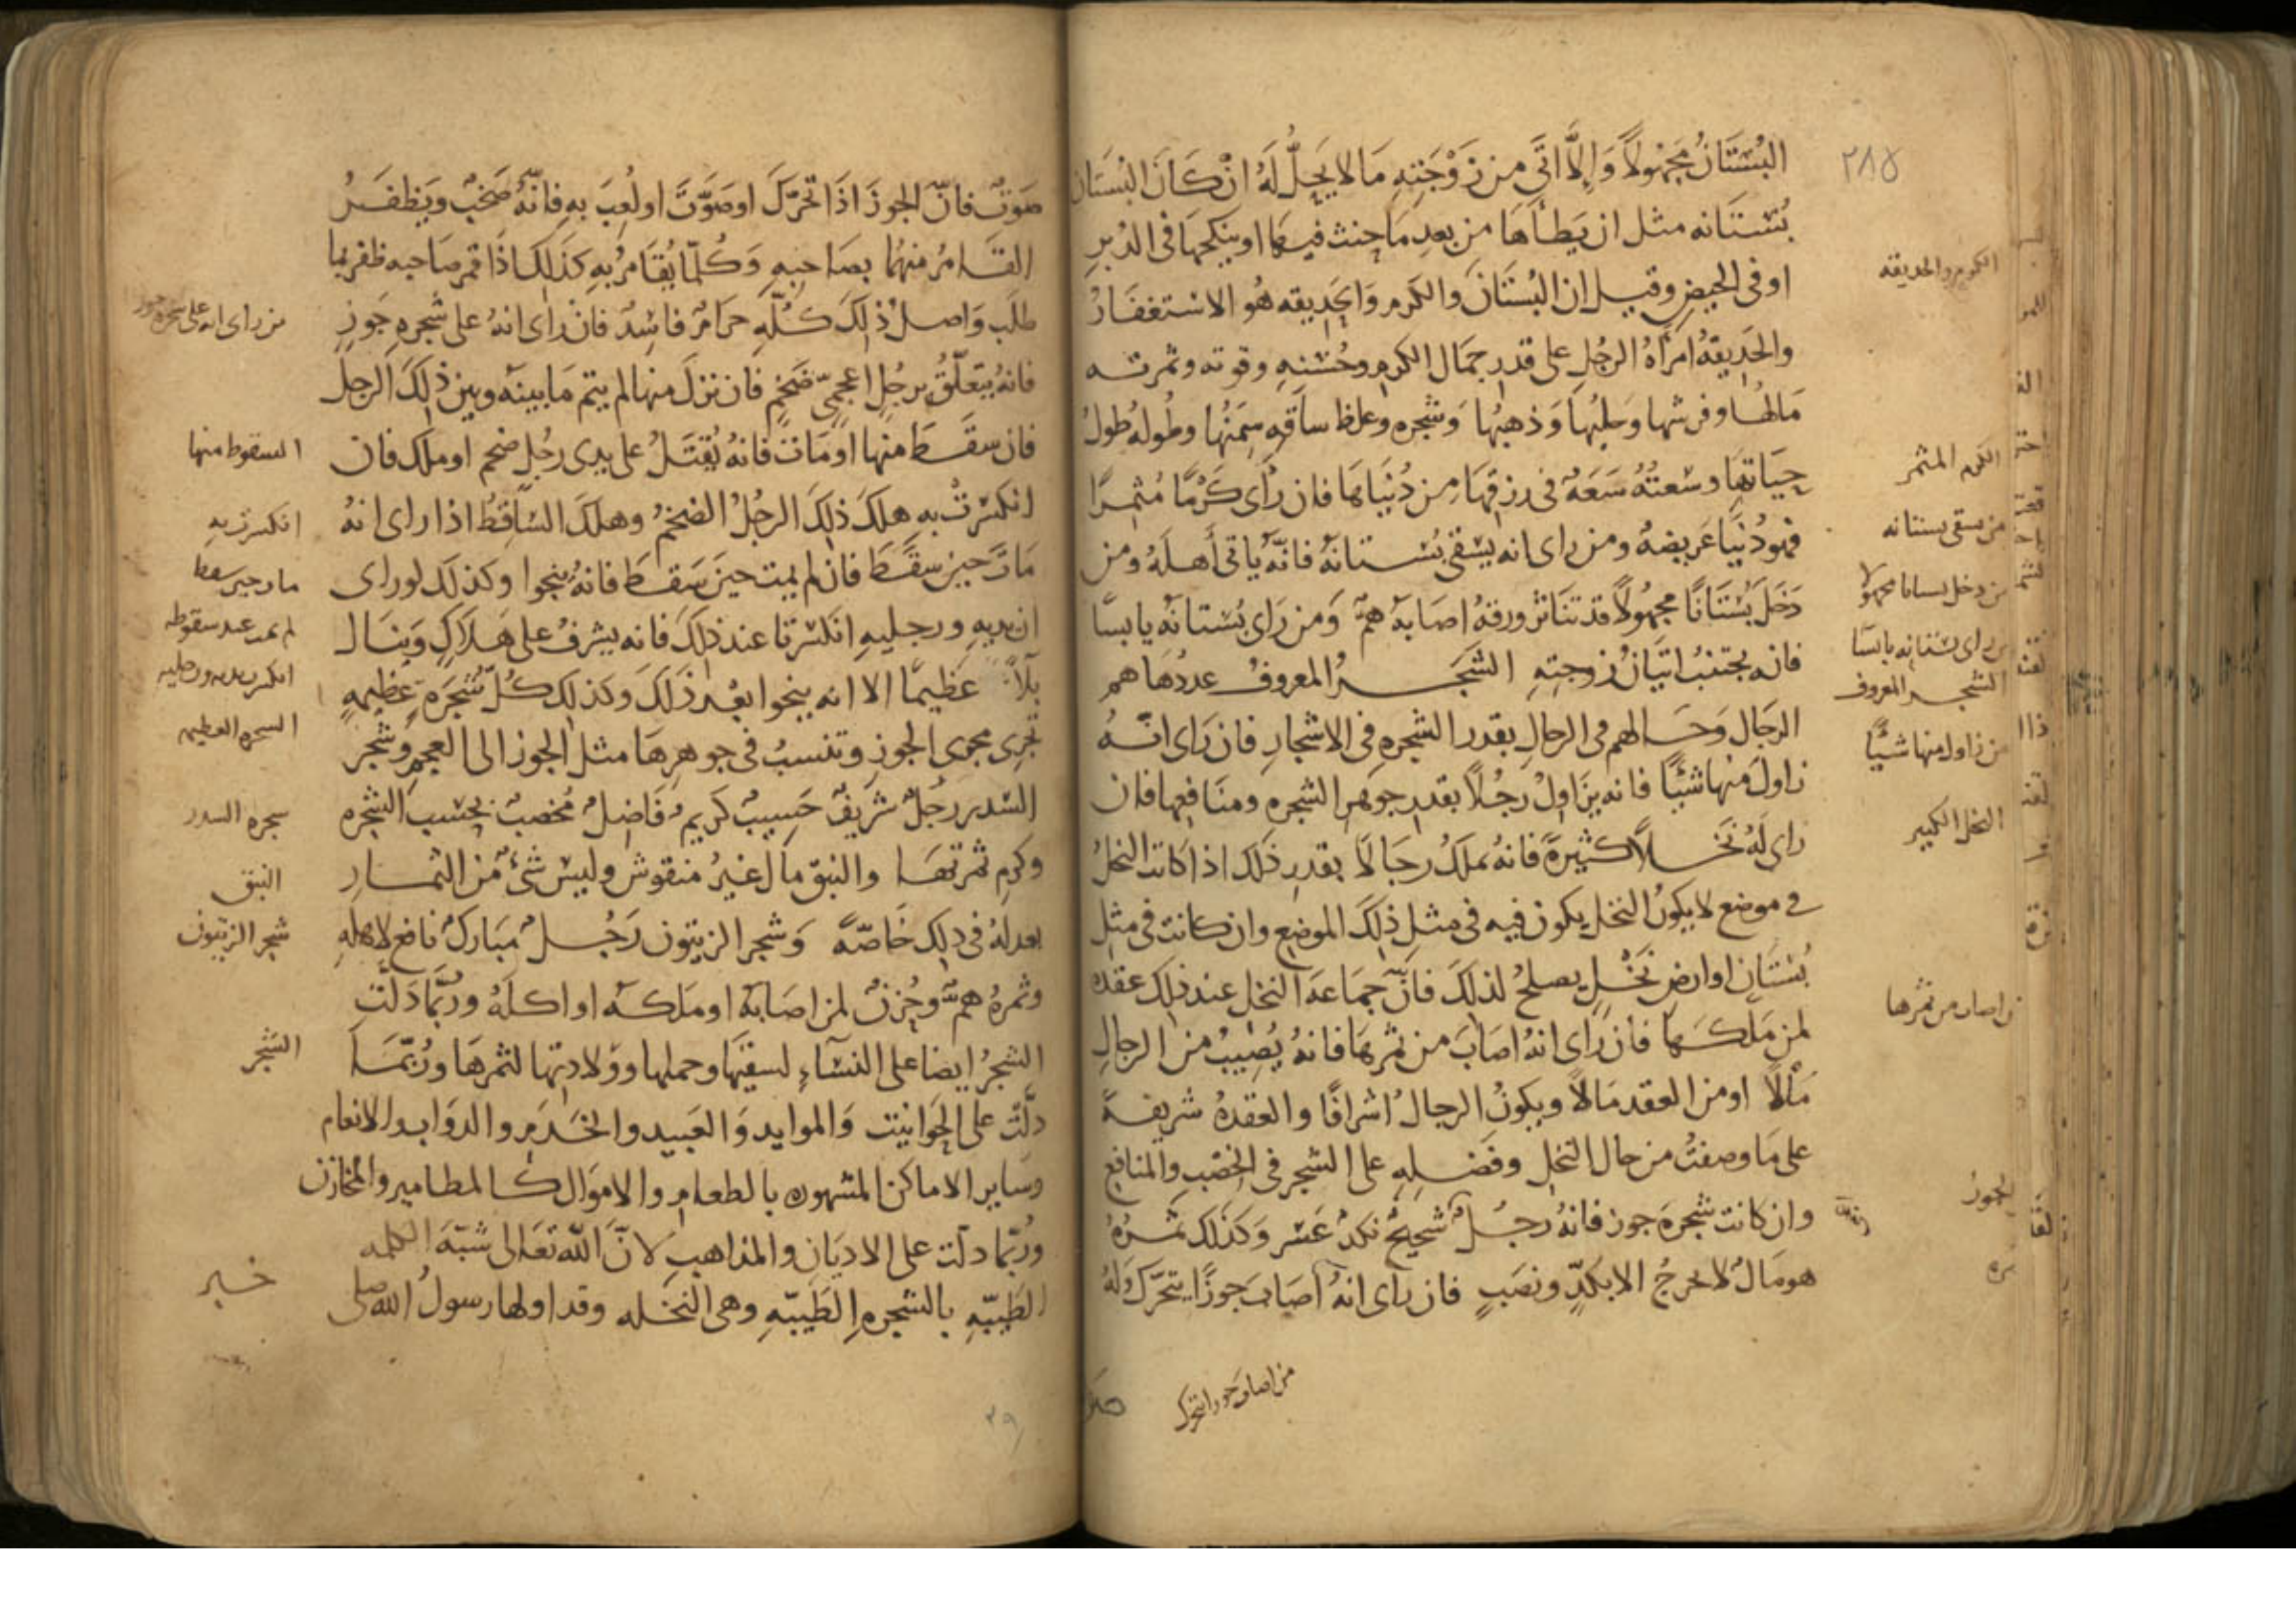 ٢٨٥
البُسْتَانُ مَجْهُولاً وَإِلاَّ اتَى مِن زَوْجَتِهِ مَا لا يَحِلُّ لَهُ انْ كَانَ البُسْتَان
بُسْتَانه مثل ان يَطَأَهَا مِن بعدِ مَا حنث فيها او ينكحهَا فى الدُبرِ
اوفى الحيضِ وقيل ان البُسْتَانَ والكرم وَالحَدِيقه هُو الاسْتغفَارُ
والحَدِيقهُ امرَأهُ الرجُلِ على قدرِ جمَال الكرم وحُسْنِهِ وقوته وثمرته
مَالهَا وفرشها وَحليُهَا وَذهبُهَا وَشجره وغلظ ساقهِ سِمَنُهَا وطُولهُ طولُ
حيَاتهَا وسْعتُهُ سَعَهٌ فى رزقهَا مِن دُنيَاهَا فان رأى كَرْمًا مُثمِرًا
فهو دُنيَا عَرِيضهٌ ومن راى انه يسْقى بُسْتانهُ فانّه ياتى أهلَهُ ومن
دَخَلَ بُسْتَانًا مجهُولاً قد تنَاثر ورقهُ اصَابهُ همٌّ وَمن رَاى بُسْتانه يابسًا
فانه يجتنبُ اتيَان زوجتِهِ الشجَرُ المعروفُ عددُهَا هم
الرجَال وَحَالهم فى الرجالِ بقدر الشجره فى الاشجارِ فان رَاى انّهُ
زاولَ منها شيئًا فانه يزَاولُ رجُلاً بقدرِ جوهرِ الشجره ومنَافِعها فان
راى لَهُ نَخلاً كثيرةً فانهُ يملكُ رجَالاً بقدرِ ذلك اذا كانت النخلُ
فى موضع لا يكونُ النخل يكون فيه فى مثلِ ذلكَ الموضعِ وان كانت فى مثلِ
بُسْتَانٍ او ارضِ نَخْلٍ يصلحُ لذلكَ فانّ جمَاعهَ النخل عند ذلك عقده
لمن مَلكَها فان رَاى انهُ اصَابَ من ثمرهَا فانهُ يُصيبُ من الرجالِ
مَالاً او من العقدِ مَالاً ويكونُ الرجالُ اشرافًا والعقدهُ شريفهً
على مَا وصفتُ من حال النخلِ وفضلِهِ على الشجرِ فى الخصْبِ والمنافعِ
وان كانت شجرهَ جوز فانهُ رجُلٌ شحيحٌ نكدٌ عَسر وَكذلك ثمَرُهُ
هو مَالٌ لا يخرجُ الا بكدٍّ ونصَبٍ فان راى انهُ اصَابَ جوزًا يتحَرّك وَلهُ
الكرم والحديقه
الكرم المثمر
من سقى بستانه
من دخل بستانا مجهولا
من راى بستانه يابسًا
الشجر المعروف
من زاول منها شيئًا
النخل الكبير
من اصاب من ثمرها
الجوز
من اصاب جوزا يتحرك
صَوتٌ فانّ الجوزَ اذَا تحَرّكَ او صَوَّتَ او لُعِبَ بهِ فانّهُ صَخبٌ وَيَظفَرُ
القَامرُ منهُمَا بصَاحبِهِ وَكُلمّا يُقَامرُ بهِ كذَلك اذَا قمر صَاحبه ظفر بما
طلَب وَاصلُ ذلكَ كُلّهِ حرَامٌ فاسِدٌ فان رَاى انهُ على شجرهِ جَوزٍ
فانهُ يتعَلّقُ برجُلٍ اعجمىّ ضَخمٍ فان نزلَ منها لم يتم مَا بينهُ وبين ذلكَ الرجل
فان سقَطَ منها او مَات فانهُ يُقتَلُ على يدى رجُلٍ ضخم او ملك فان
انكسَرتْ بهِ هلكَ ذلكَ الرجُلُ الضخمُ وهلكَ السَّاقِطُ اذا راى انهُ
مَاتَ حين سقَطَ فان لم يمت حينَ سَقطَ فانهُ ينجوا وكذلكَ لوراى
ان يديهِ ورجليهِ انكسَرتا عند ذلكَ فانه يشرفُ على هَلاَكٍ وَينَال
بَلاءً عظيمًا الا انه ينجوا بعْدَ ذلكَ وكذلكَ كُلّ شجَرَةٍ عظيمهٍ
تجرى مجرى الجوزِ وتنسبُ فى جوهرِهَا مثل الجوز الى العجمِ وَشجر
السّدر رَجُلٌ شرَيفٌ حَسِيبٌ كريمٌ فَاضلٌ مُخصبٌ بحَسَب الشجره
وكرمِ ثمرتهَا والنبق مَال غيرُ منقوش وليسَ شىءٌ من الثمَارِ
يعدلهُ فى ذلك خَاصّهً وَشجر الزيتون رَجُلٌ مُبَاركٌ نافع لاهلهِ
وثمرهُ همٌّ وحُزنٌ لمن اصَابهُ او ملكهُ او اكلهُ ورُبّما دَلّتْ
الشجرُ ايضا على النسَاءِ لسقيهَا وحملها وولادتها لثمرهَا ورُبّمَا
دلّت على الحَوانيت وَالموايد وَالعبيد والخَدَم والدوَاب والانعام
وسَاير الاماكن المشهوره بالطعام والاموَال كالمطامير والمخازن
ورُبّما دلّت على الاديَان والمذاهبِ لانّ اللّهَ تعَالى شبّهَ الكلمه
الطيّبهِ بالشجرهِ الطَيّبهِ وهى النخله وقد اولها رسولُ الله صلى
من راى انه على شجره جوز
السقوط منها
انكسرت به
مات حين سقط
لم يمت عند سقوطه
انكسرت يديه ورجليه
الشجره العظيمه
شجره السدر
النبق
شجر الزيتون
الشجر
خبر
٢٩